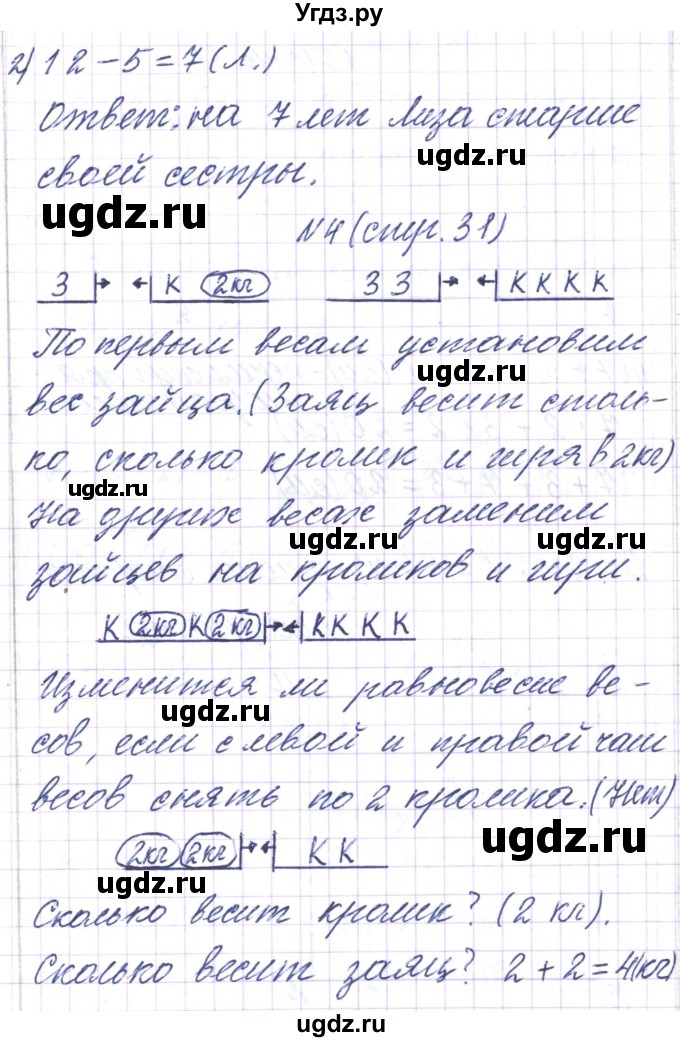 Угдз.ру
2) 12 - 5 = 7 (л.)
Ответ: на 7 лет Лиза старше
ugdz.ru
своей сестры.
ugdz.ru
N4 (стр. 31)
З К 2кг З З К К К К
По первым весам установим
ugdz.ru
вес зайца. (Заяц весит столь-
ко, сколько кролик и гиря в 2кг)
ugdz.ru
На других весах заменим
ugdz.ru ugdz.ru
зайцев на кроликов и гири.
К 2кг К 2кг К К К К
Изменится ли равновесие ве-
ugdz.ru
сов, если с левой и правой чаш
весов снять по 2 кролика. (Нет)
ugdz.ru
2кг 2кг К К
ugdz.ru
Сколько весит кролик? (2 кг).
ugdz.ru
Сколько весит заяц? 2 + 2 = 4(кг)
ugdz.ru